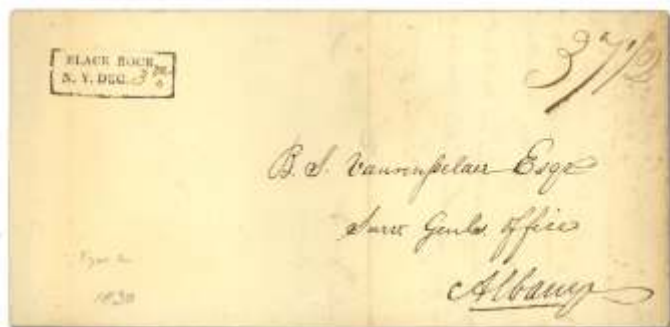 BLACK ROCK
N. Y. DEC. 3
37 1/2
B. S. Vanrensselaer Esqr
Surv Genls. Office
Albany
1830